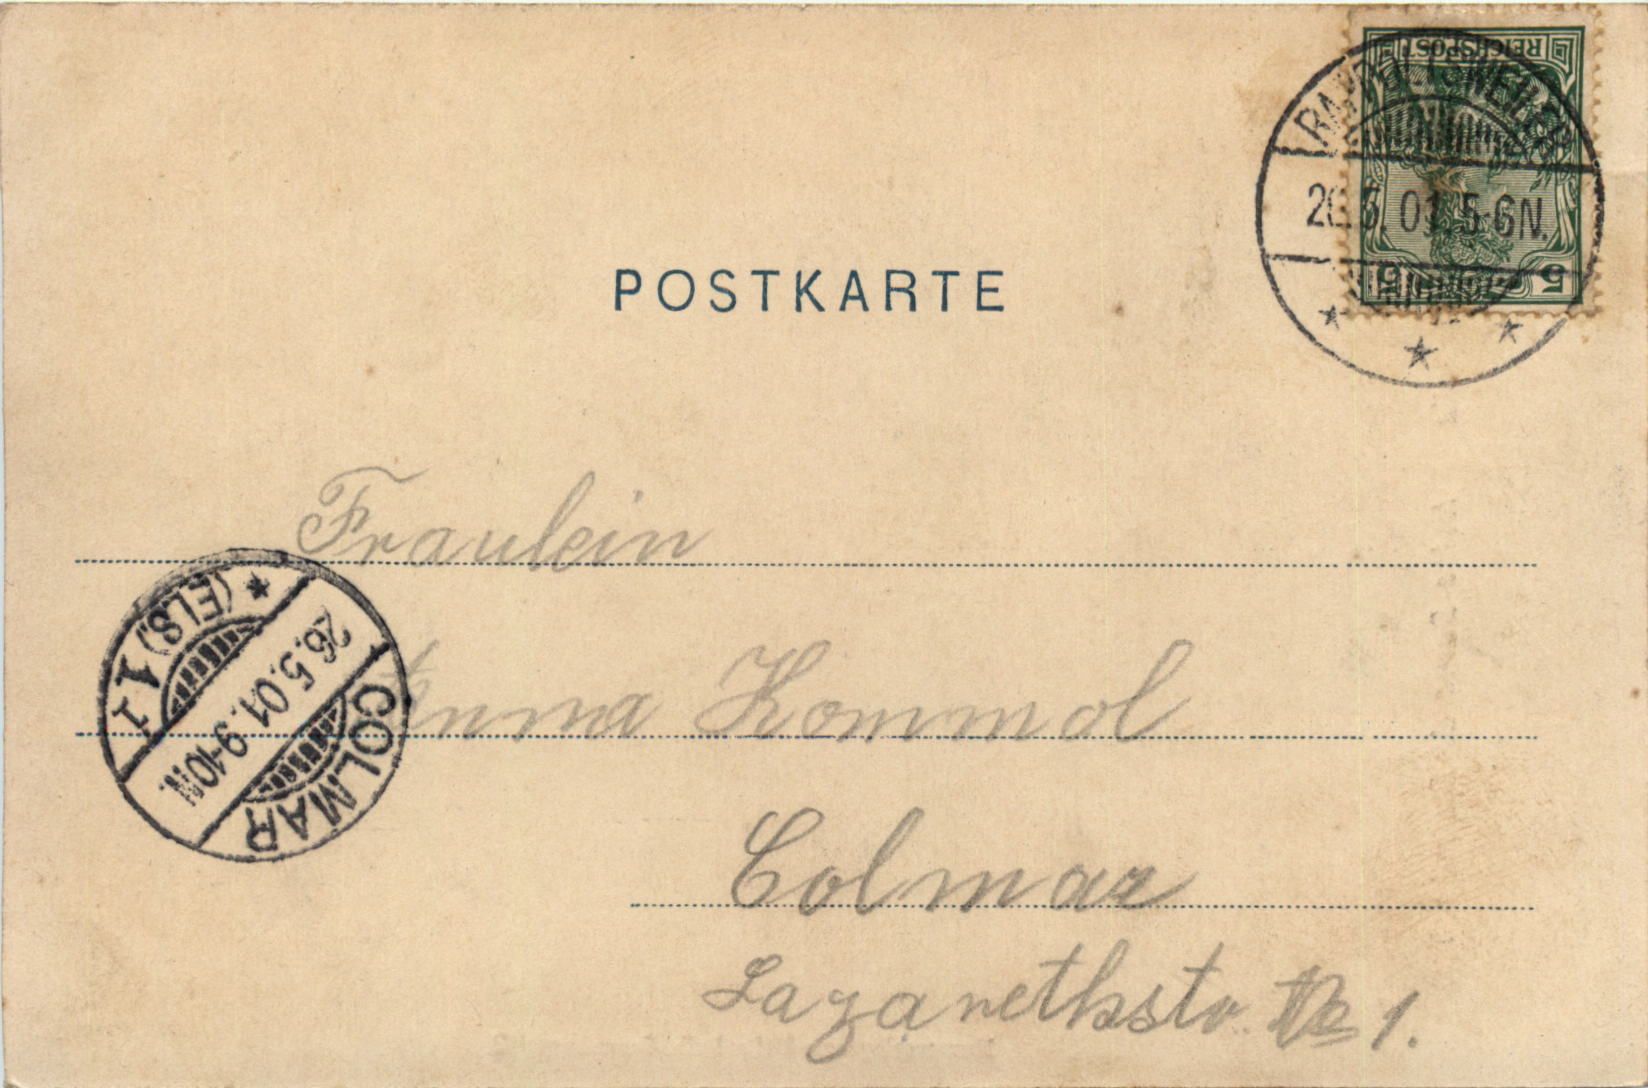 REICHSPOST
RAPPOLTSWEILER
26.5.01. 5-6N.
5 5
POSTKARTE
Fraulein
Anna Kommol
Colmar
Lazarethstr. No 1.
COLMAR
26.5.01. 9-10N.
(ELS.) 1
1